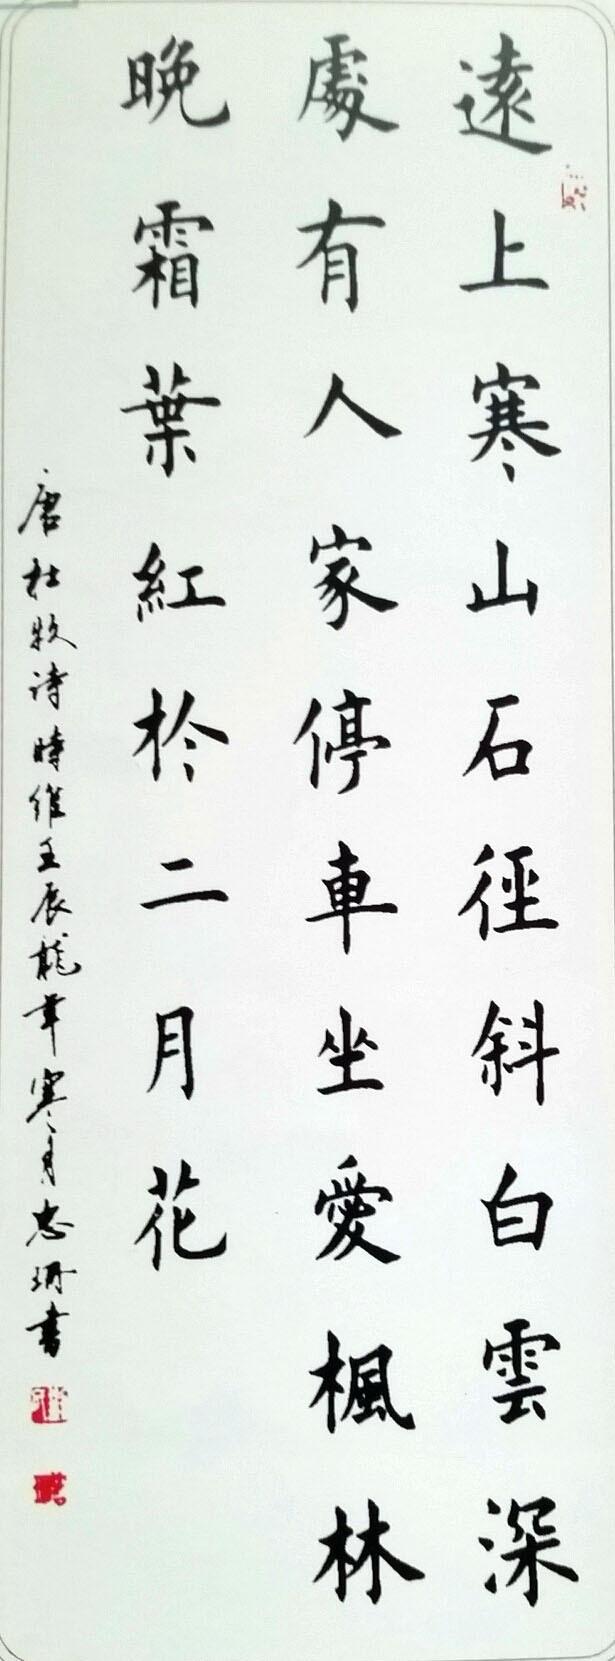 遠上寒山石徑斜白雲深
處有人家停車坐愛楓林
晚霜葉紅於二月花
唐杜牧诗時維壬辰龍年寒月志珊書